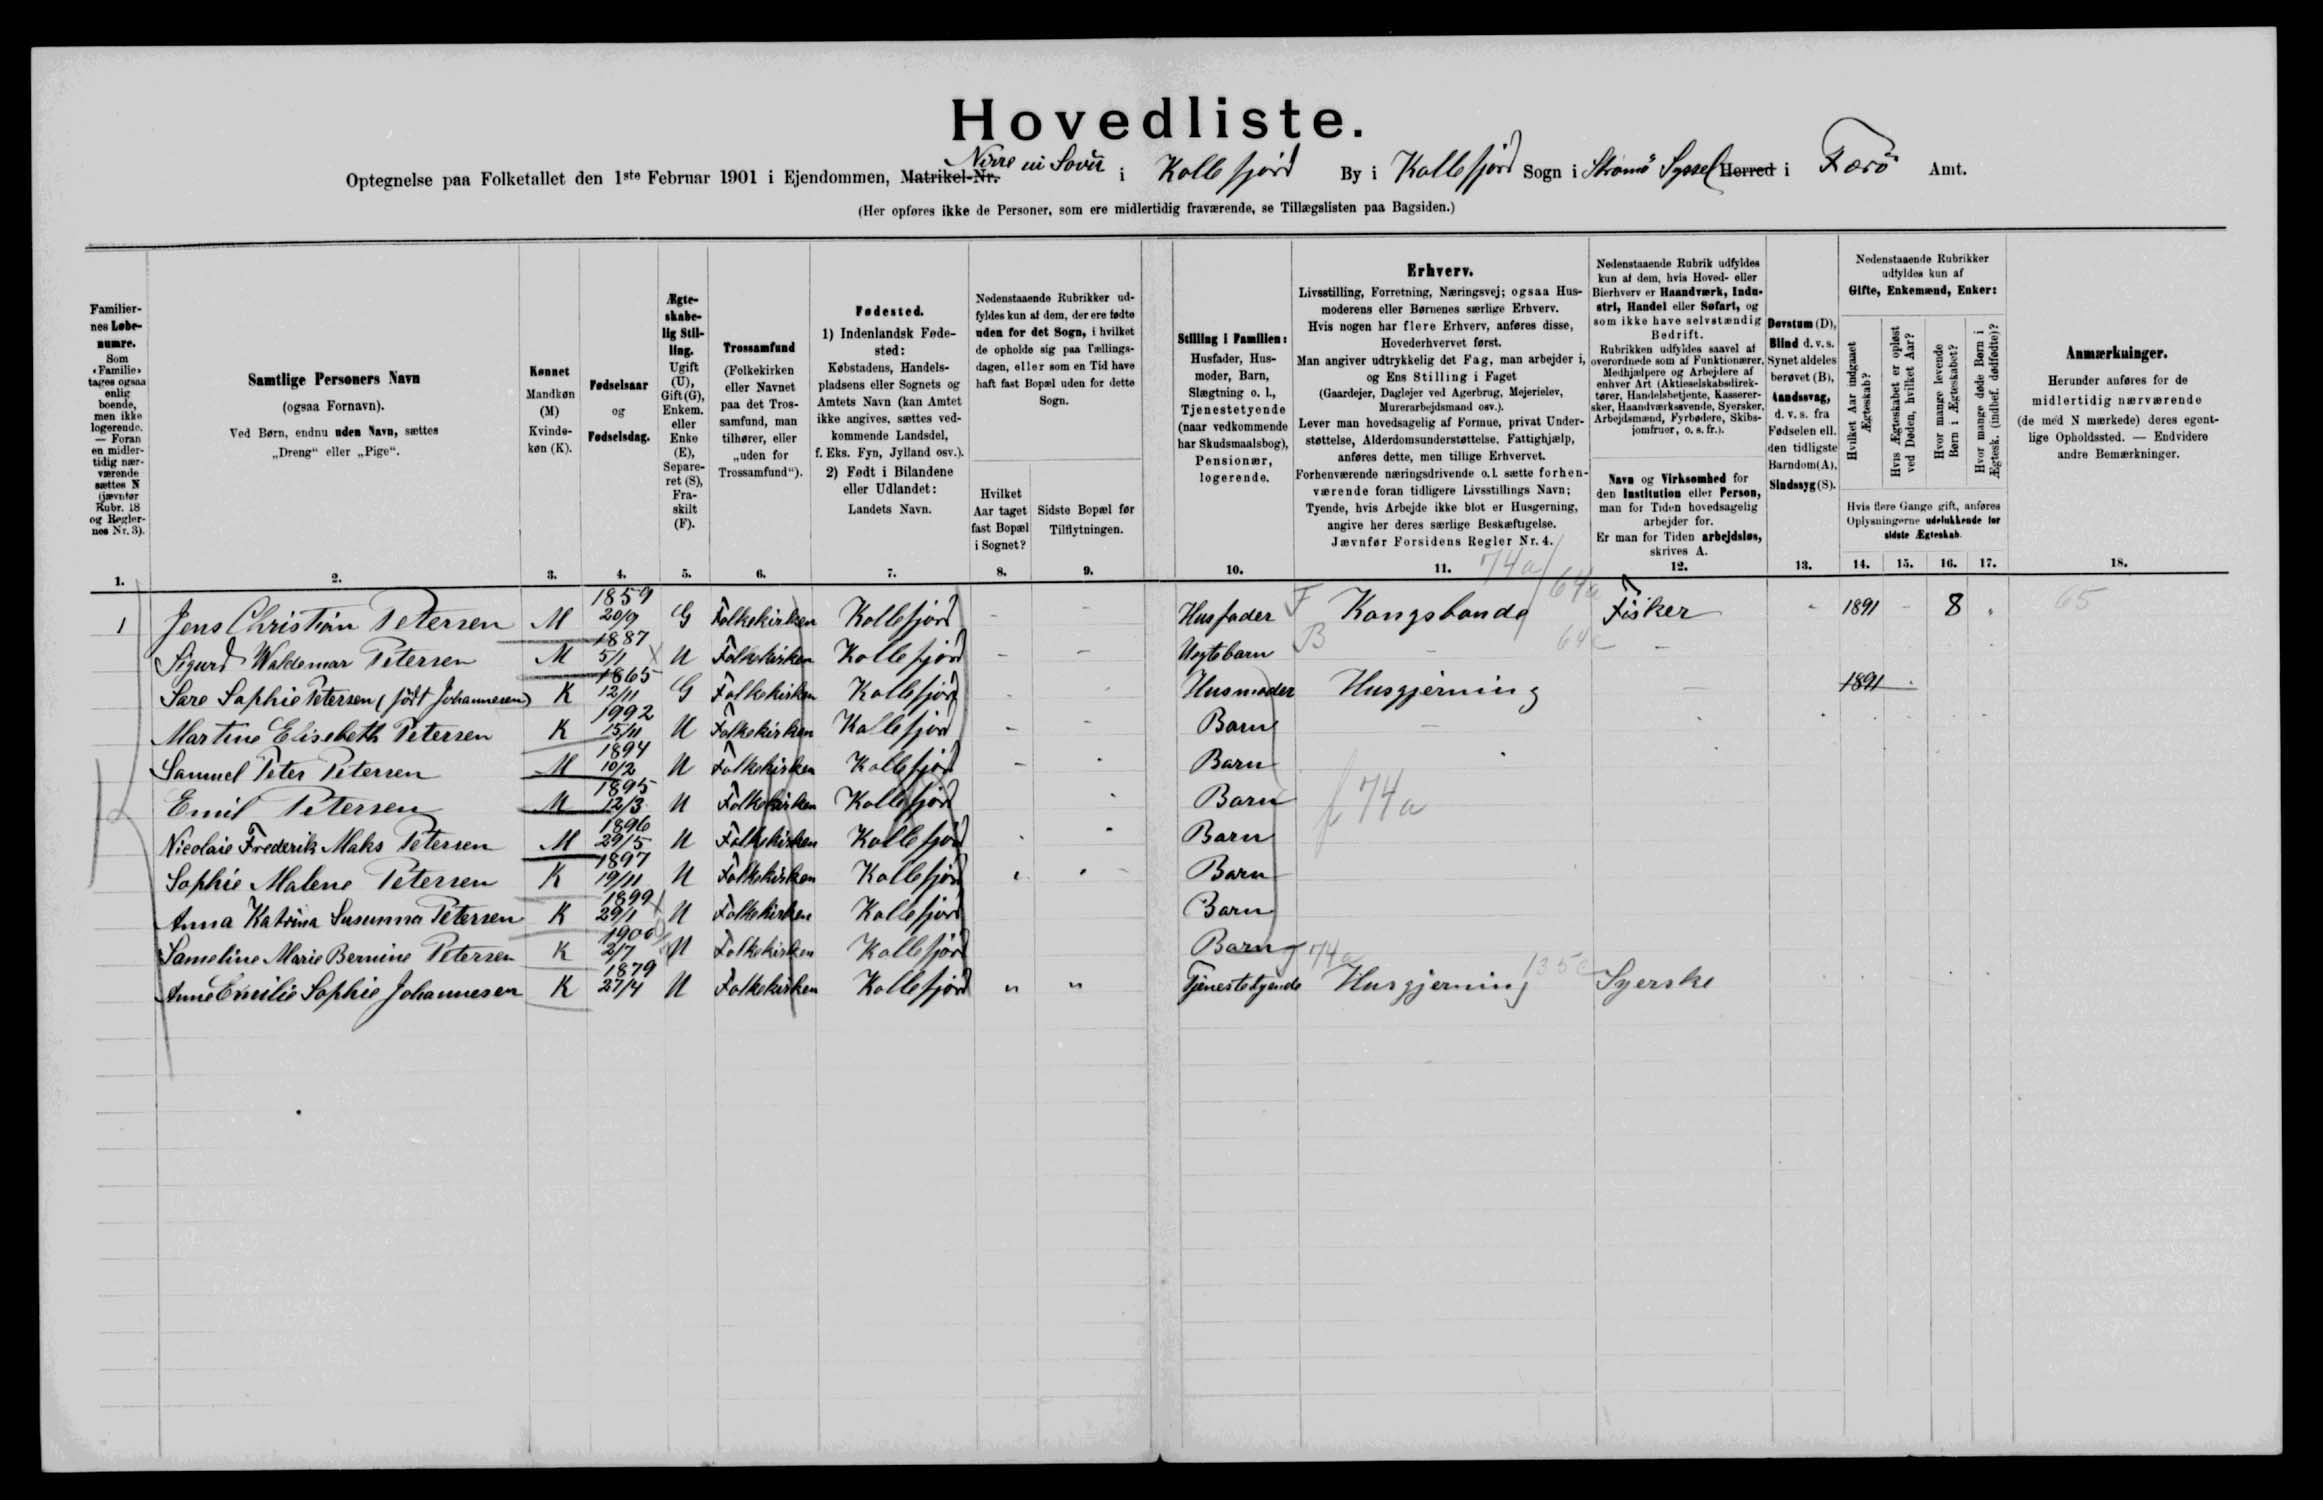 Hovedliste.
Optegnelse paa Folketallet den 1ste Februar 1901 i Ejendommen, Matrikel-Nr. Nirre ui Sovü i Kollefjörd By i Kollefjörd Sogn i Strömö Syssel Herred i Færö Amt.
(Her opføres ikke de Personer, som ere midlertidig fraværende, se Tillægslisten paa Bagsiden.)
Familiernes Løbenumre. Som «Familie» tages ogsaa enlig boende, men ikke logerende. — Foran en midlertidig nærværende sættes N (jævnfør Rubr. 18 og Reglernes Nr. 3).
Samtlige Personers Navn
(ogsaa Fornavn).
Ved Børn, endnu uden Navn, sættes
„Dreng“ eller „Pige“.
Kønnet
Mandkøn (M)
Kvindekøn (K).
Fødselsaar
og
Fødselsdag.
Ægteskabelig Stilling.
Ugift (U), Gift (G), Enkem. eller Enke (E), Separeret (S), Fraskilt (F).
Trossamfund
(Folkekirken eller Navnet paa det Trossamfund, man tilhører, eller „uden for Trossamfund“).
Fødested.
1) Indenlandsk Fødested:
Købstadens, Handelspladsens eller Sognets og Amtets Navn (kan Amtet ikke angives, sættes vedkommende Landsdel, f. Eks. Fyn, Jylland osv.).
2) Født i Bilandene eller Udlandet:
Landets Navn.
Nedenstaaende Rubrikker udfyldes kun af dem, der ere fødte uden for det Sogn, i hvilket de opholde sig paa Tællingsdagen, eller som en Tid have haft fast Bopæl uden for dette Sogn.
Hvilket Aar taget fast Bopæl i Sognet?
Sidste Bopæl før Tilflytningen.
Stilling i Familien:
Husfader, Husmoder, Barn, Slægtning o. l., Tjenestetyende (naar vedkommende har Skudsmaalsbog), Pensionær, logerende.
Erhverv.
Livsstilling, Forretning, Næringsvej; ogsaa Husmoderens eller Børnenes særlige Erhverv.
Hvis nogen har flere Erhverv, anføres disse, Hovederhvervet først.
Man angiver udtrykkelig det Fag, man arbejder i, og Ens Stilling i Faget
(Gaardejer, Daglejer ved Agerbrug, Mejerielev, Murerarbejdsmand osv.).
Lever man hovedsagelig af Formue, privat Understøttelse, Alderdomsunderstøttelse, Fattighjælp, anføres dette, men tillige Erhvervet.
Forhenværende næringsdrivende o. l. sætte forhenværende foran tidligere Livsstillings Navn;
Tyende, hvis Arbejde ikke blot er Husgerning, angive her deres særlige Beskæftigelse.
Jævnfør Forsidens Regler Nr. 4.
Nedenstaaende Rubrik udfyldes kun af dem, hvis Hoved- eller Bierhverv er Haandværk, Industri, Handel eller Søfart, og som ikke have selvstændig Bedrift.
Rubrikken udfyldes saavel af overordnede som af Funktionærer, Medhjælpere og Arbejdere af enhver Art (Aktieselskabsdirektører, Handelsbetjente, Kasserersker, Haandværksvende, Syersker, Arbejdsmænd, Fyrbødere, Skibsjomfruer, o. s. fr.).
Navn og Virksomhed for den Institution eller Person, man for Tiden hovedsagelig arbejder for.
Er man for Tiden arbejdsløs, skrives A.
Døvstum (D), Blind d. v. s. Synet aldeles berøvet (B), Aandssvag, d. v. s. fra Fødselen ell. den tidligste Barndom (A), Sindssyg (S).
Nedenstaaende Rubrikker udfyldes kun af
Gifte, Enkemænd, Enker:
Hvilket Aar indgaaet Ægteskab?
Hvis Ægteskabet er opløst ved Døden, hvilket Aar?
Hvor mange levende Børn i Ægteskabet?
Hvor mange døde Børn i Ægtesk. (indbef. dødfødte)?
Hvis flere Gange gift, anføres Oplysningerne udelukkende for sidste Ægteskab.
Anmærkninger.
Herunder anføres for de midlertidig nærværende (de med N mærkede) deres egentlige Opholdssted. — Endvidere andre Bemærkninger.
1. 2. 3. 4. 5. 6. 7. 8. 9. 10. 11. 12. 13. 14. 15. 16. 17. 18.
74a 64a
1 Jens Christian Petersen M 1859 20/9 G Folkekirken Kollefjörd - - Husfader F Kongsbonde Fisker - 1891 - 8 . 65
Sigurd Waldemar Petersen M 1887 5/1 U Folkekirken Kollefjörd - - Ungtebarn B - 64c -
Sare Saphie Petersen (födt Johannesen) K 1865 12/11 G Folkekirken Kollefjörd - - Husmoder Husgjerning - 1891
Martine Elisebeth Petersen K 1992 15/11 U Folkekirken Kollefjörd - - Barn -
Samuel Peter Petersen M 1894 10/2 U Folkekirken Kollefjörd - - Barn
Emil Petersen M 1895 12/3 U Folkekirken Kollefjörd - Barn f 74a
Nicolaie Frederik Maks Petersen M 1896 29/5 U Folkekirken Kollefjörd - - Barn
Sophie Malene Petersen K 1897 19/11 U Folkekirken Kollefjörd - - Barn
Anna Katrina Susanna Petersen K 1899 29/1 U Folkekirken Kollefjörd Barn
Sameline Marie Bernine Petersen K 1900 2/7 U Folkekirken Kollefjörd Barn 74a
Anne Emilie Sophie Johannesen K 1879 27/4 U Folkekirken Kollefjörd " " Tjenestetyende Husgjerning 135c Syerske